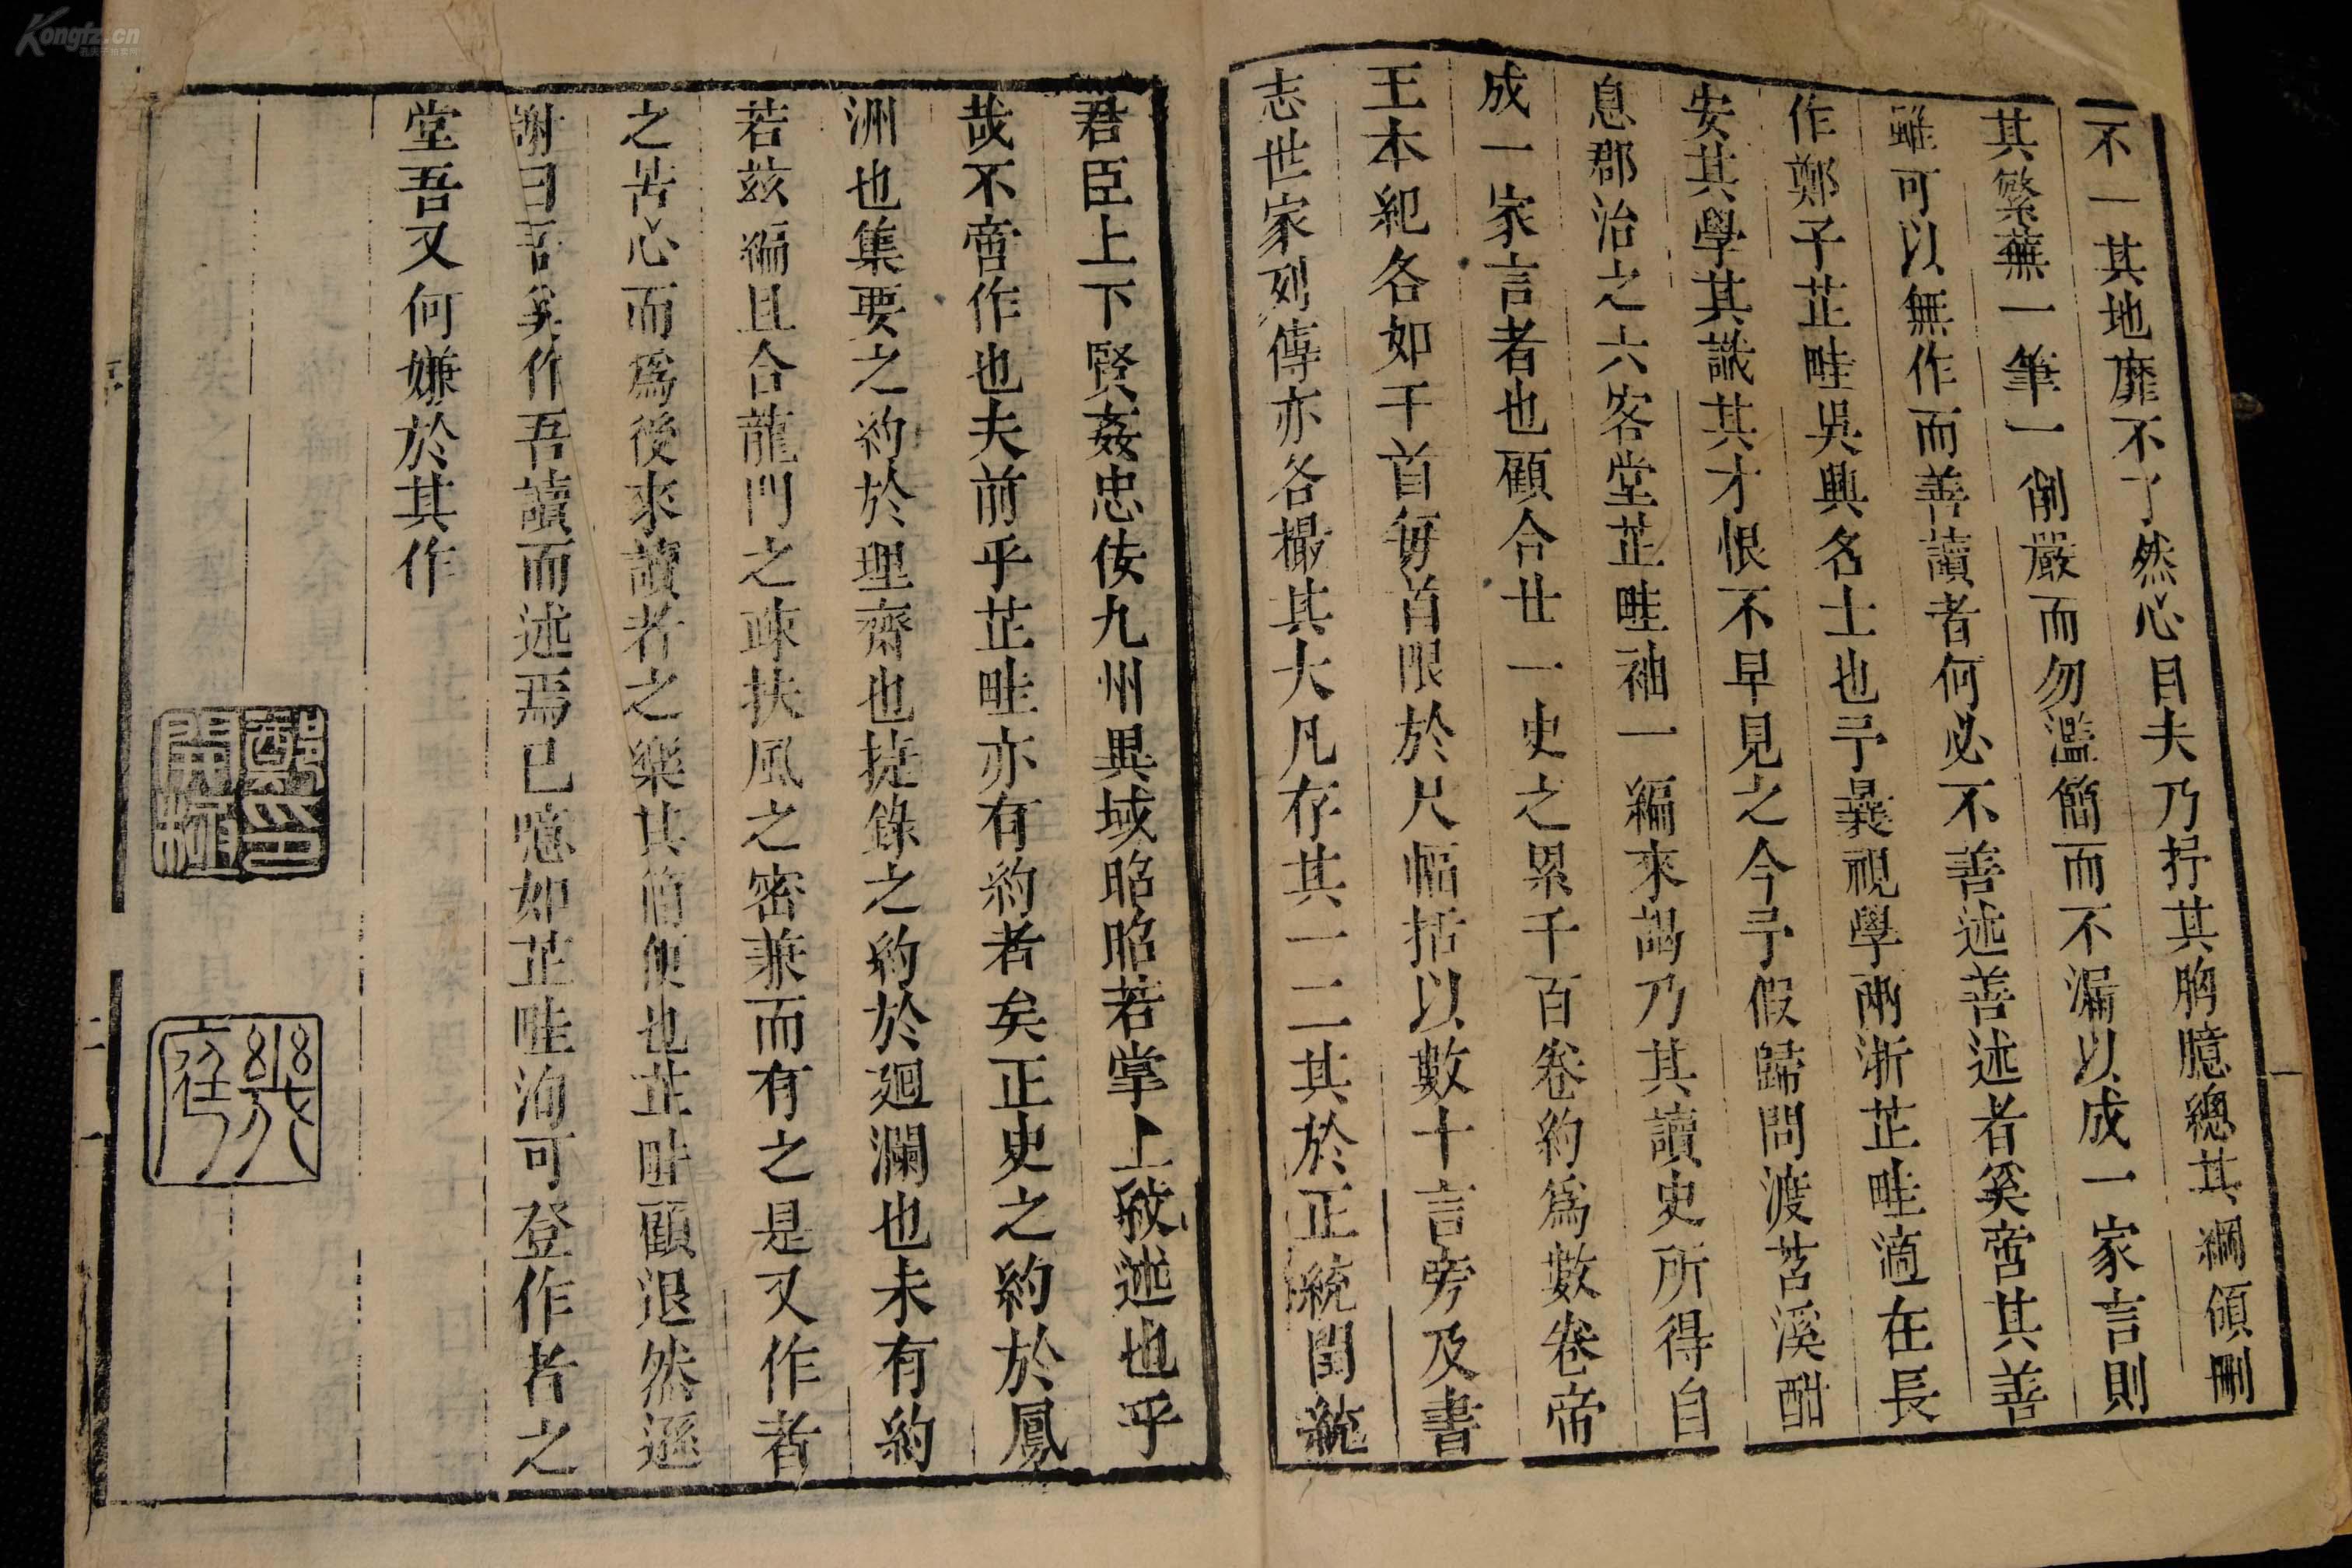 不一其地靡不了然心目夫乃抒其胸臆總其綱領刪
其繁蕪一筆一削嚴而勿濫簡而不漏以成一家言則
雖可以無作而善讀者何必不善述善述者奚啻其善
作鄭子芷畦吳興名士也予曩視學兩浙芷畦適在長
安其學其識其才恨不早見之今予假歸問渡苕溪酣
息郡治之六客堂芷畦袖一編來謁乃其讀史所得自
成一家言者也顧合廿一史之累千百卷約為數卷帝
王本紀各如干首每首限於尺幅括以數十言旁及書
志世家列傳亦各撮其大凡存其一二其於正統閏統
君臣上下賢姦忠佞九州異域昭昭若掌上紋述也乎
哉不啻作也夫前乎芷畦亦有約者矣正史之約於鳳
洲也集要之約於理齋也捷錄之約於廻瀾也未有約
若茲編且合龍門之疎扶風之密兼而有之是又作者
之苦心而爲後來讀者之樂其簡便也芷畦顧退然遜
謝曰吾奚作吾讀而述焉已噫如芷畦洵可登作者之
堂吾又何嫌於其作
鄭印開極
幾庭
序
二
一
Kongfz.cn